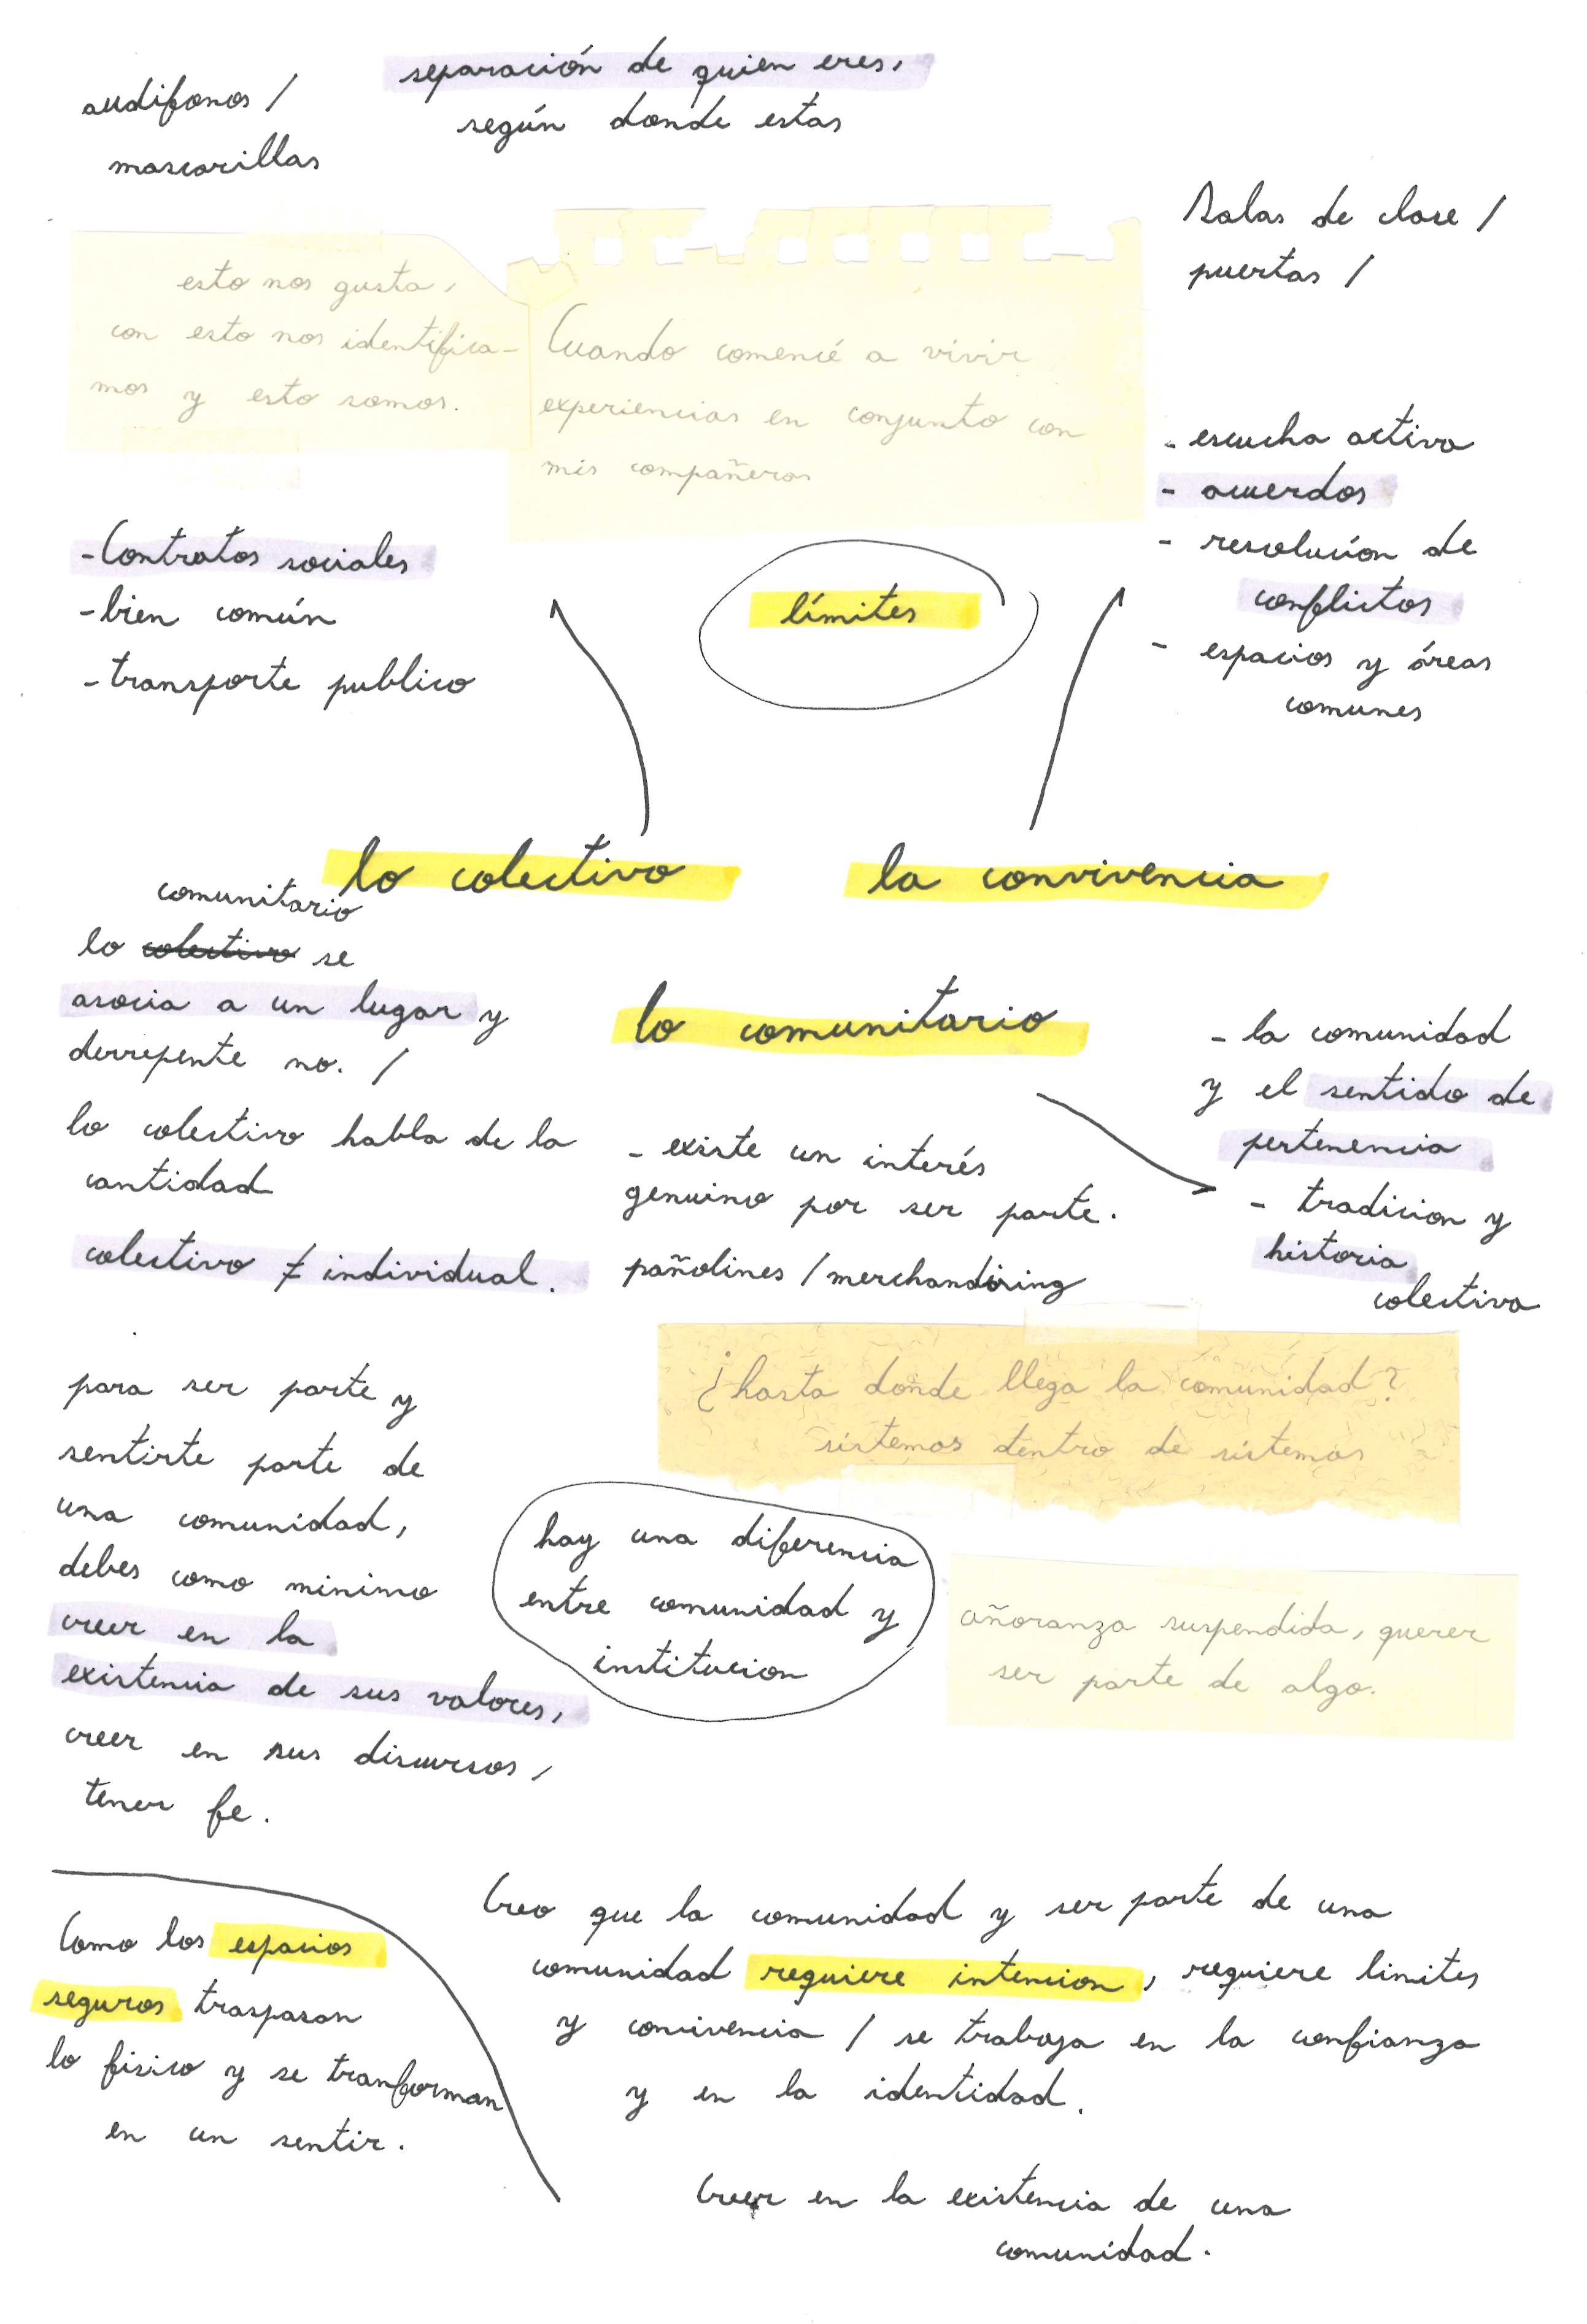 audifonos /
mascarillas
separación de quien eres,
según donde estas
Salas de clase /
puertas /
esto nos gusta,
con esto nos identifica-
mos y esto somos.
Cuando comencé a vivir
experiencias en conjunto con
mis compañeros
- escucha activa
- acuerdos
- resolución de
conflictos
- espacios y áreas
comunes
- Contratos sociales
- bien común
- transporte publico
límites
lo colectivo
la convivencia
comunitario
lo colectivo se
asocia a un lugar y
derrepente no. /
lo colectivo habla de la
cantidad
colectivo ≠ individual.
lo comunitario
- existe un interés
genuino por ser parte.
pañolines / merchandising
- la comunidad
y el sentido de
pertenencia
- tradicion y
historia
colectiva
¿hasta donde llega la comunidad?
sistemas dentro de sistemas
para ser parte y
sentirte parte de
una comunidad,
debes como minimo
creer en la
existencia de sus valores,
creer en sus discursos,
tener fe.
hay una diferencia
entre comunidad y
institucion
añoranza suspendida, querer
ser parte de algo.
Como los espacios
seguros traspasan
lo fisico y se tranforman
en un sentir.
Creo que la comunidad y ser parte de una
comunidad requiere intencion, requiere limites
y convivencia / se trabaja en la confianza
y en la identidad.
Creer en la existencia de una
comunidad.